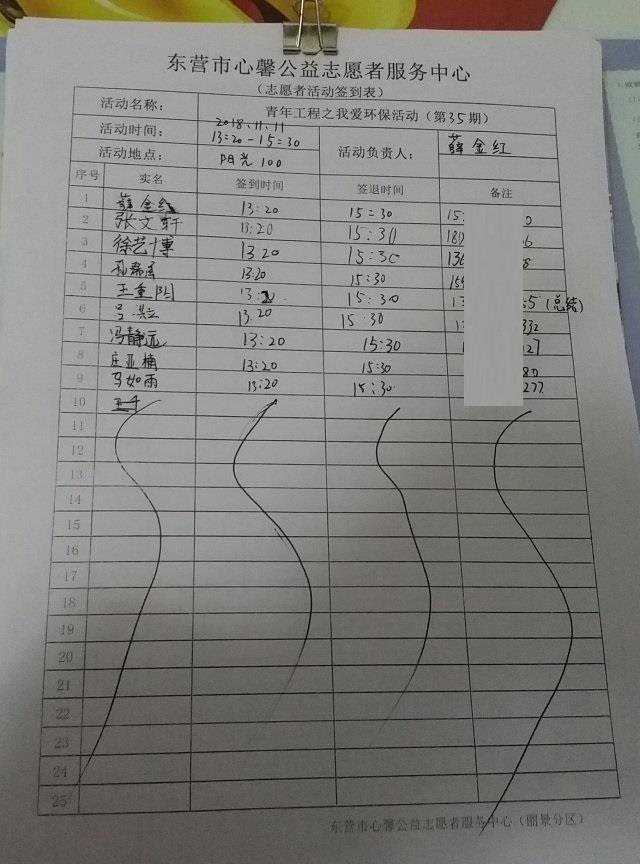 东营市心馨公益志愿者服务中心
（志愿者活动签到表）
活动名称： 青年工程之我爱环保活动（第35期）
活动时间： 2018.11.11 13:20-15:30 活动负责人： 薛金红
活动地点： 阳光100
序号 实名 签到时间 签退时间 备注
1 薛金红 13:20 15:30 15: 0
2 张文轩 13:20 15:30 180 6
3 徐艺博 13:20 15:30 136 8
4 13:20 15:30 15
5 13:2 15:30 13 5（总结）
6 13:20 15:30 1 332
7 冯静远 13:20 15:30 127
8 庄亚楠 13:20 15:30 80
9 马如雨 13:20 15:30 277
10
11
12
13
14
15
16
17
18
19
20
21
22
23
24
25
东营市心馨公益志愿者服务中心（丽景分区）